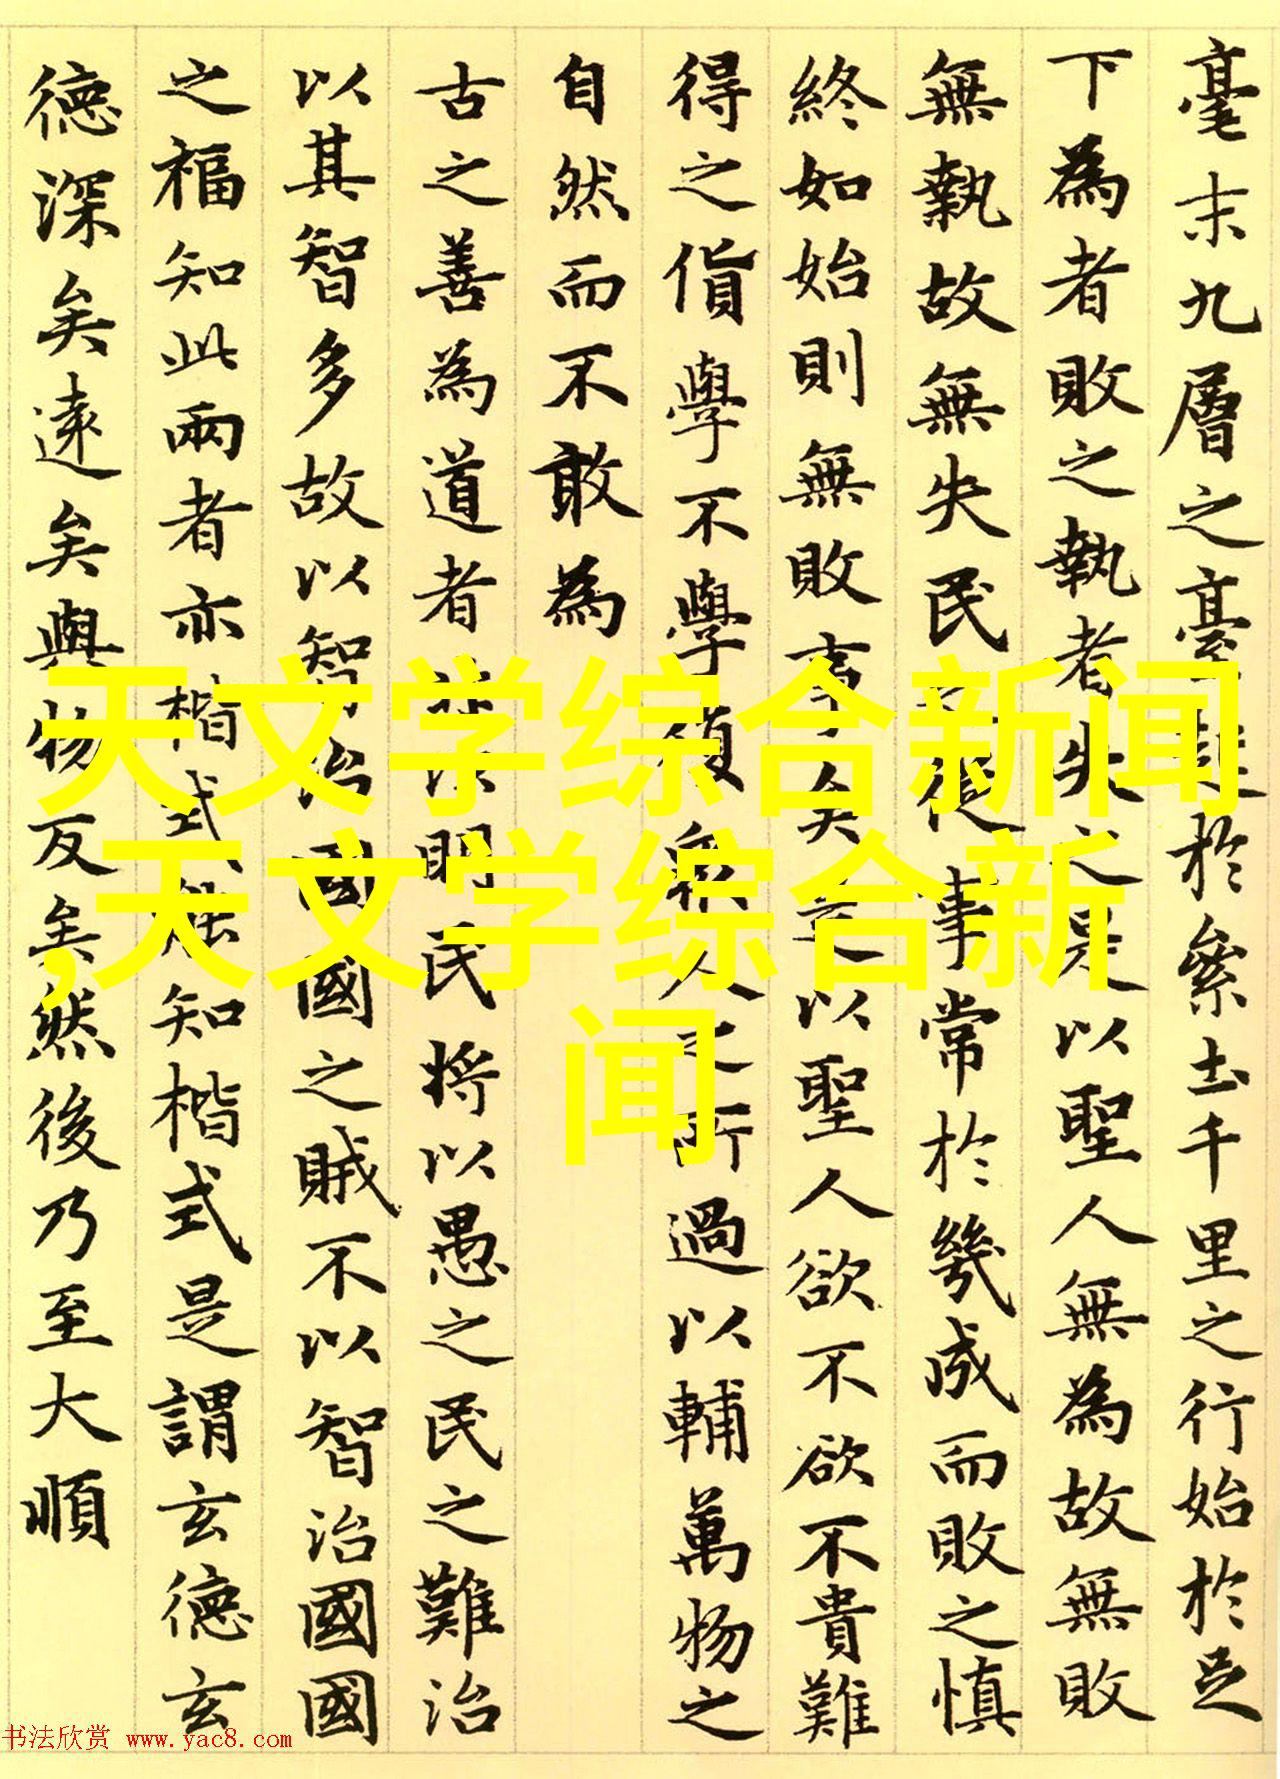 毫末九層之臺起於絫土千里之行始於足
下為者敗之執者失之是以聖人無為故無敗
無執故無失民之從事常於幾成而敗之慎
終如始則無敗事矣是以聖人欲不欲不貴難
得之貨學不學復衆人之所過以輔萬物之
自然而不敢為
古之善為道者非以明民將以愚之民之難治
以其智多故以智治國國之賊不以智治國國
之福知此兩者亦楷式能知楷式是謂玄德玄
德深矣遠矣與物反矣然後乃至大順
天文学综合新闻
,天文学综合新
闻
书法欣赏 www.yac8.com